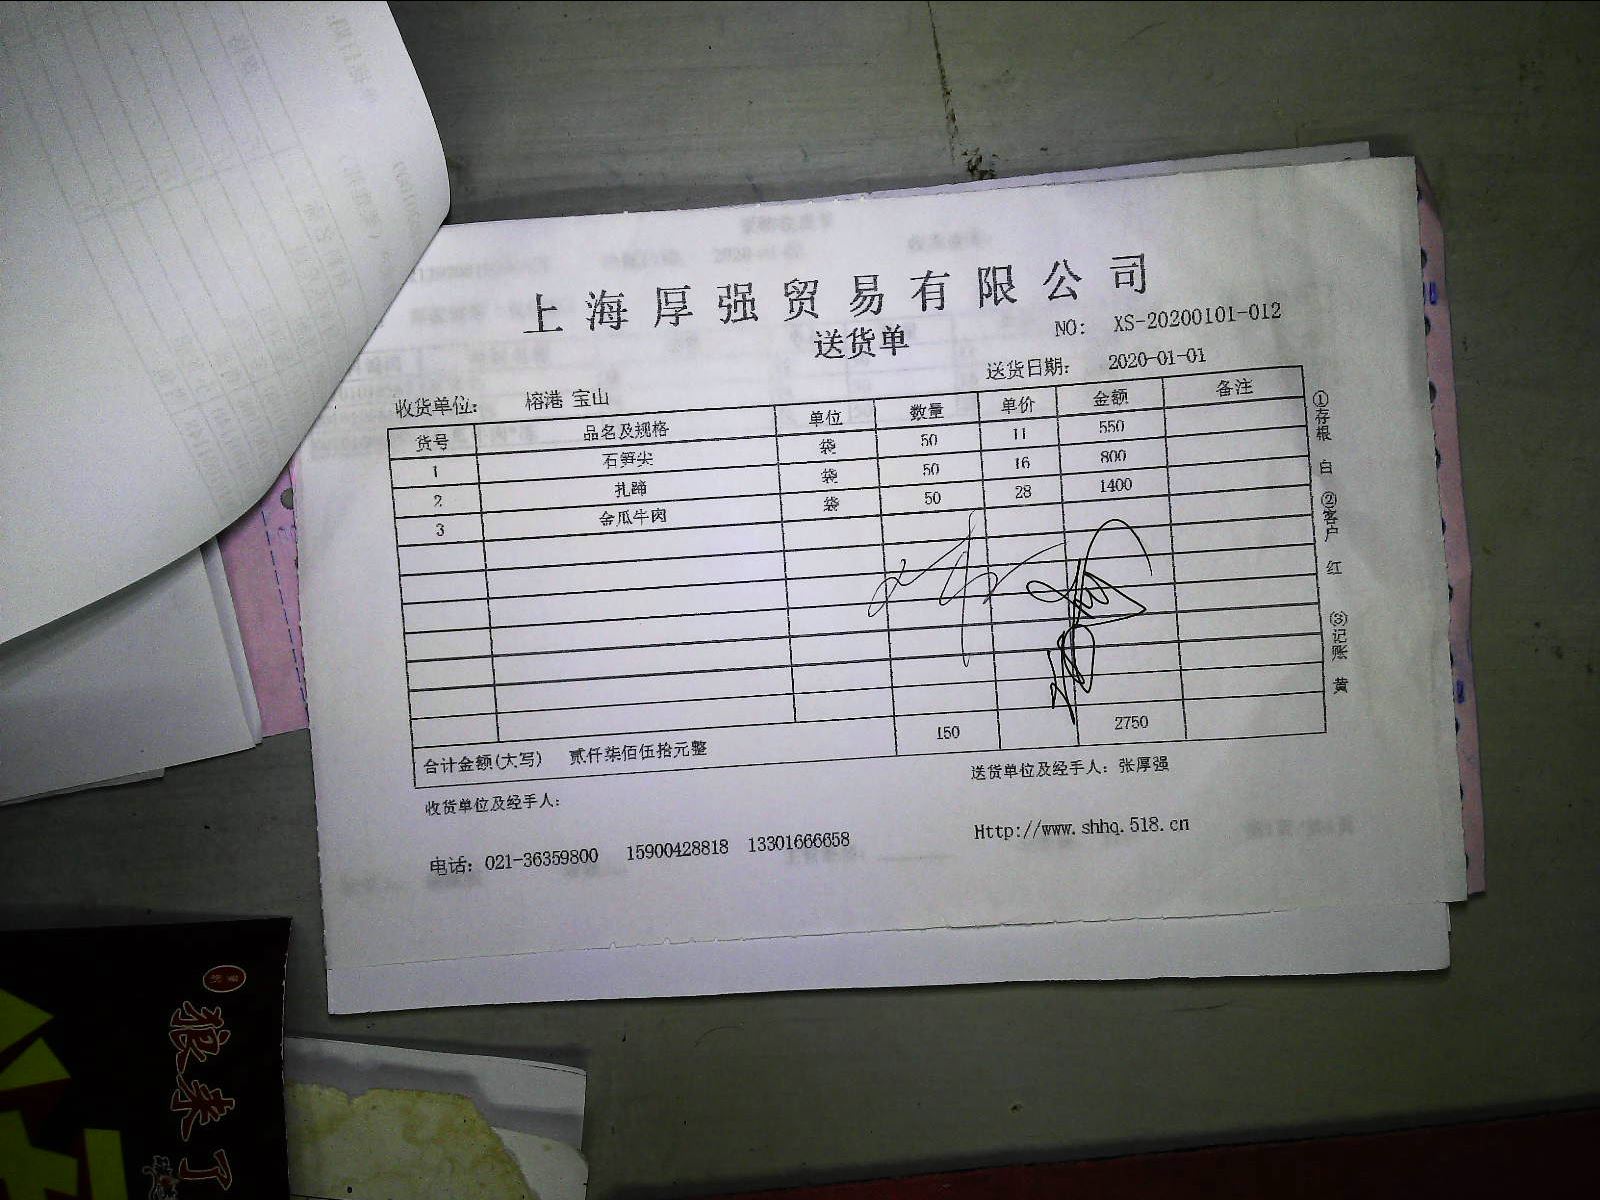 上海厚强贸易有限公司
送货单
NO: XS-20200101-012
送货日期: 2020-01-01
收货单位: 榕港 宝山
货号 品名及规格 单位 数量 单价 金额 备注
1 石笋尖 袋 50 11 550
2 扎蹄 袋 50 16 800
3 金瓜牛肉 袋 50 28 1400
合计金额(大写) 贰仟柒佰伍拾元整 150 2750
①存根 白 ②客户 红 ③记账 黄
收货单位及经手人:
送货单位及经手人: 张厚强
电话: 021-36359800 15900428818 13301666658
Http://www.shhq.518.cn
狼来了